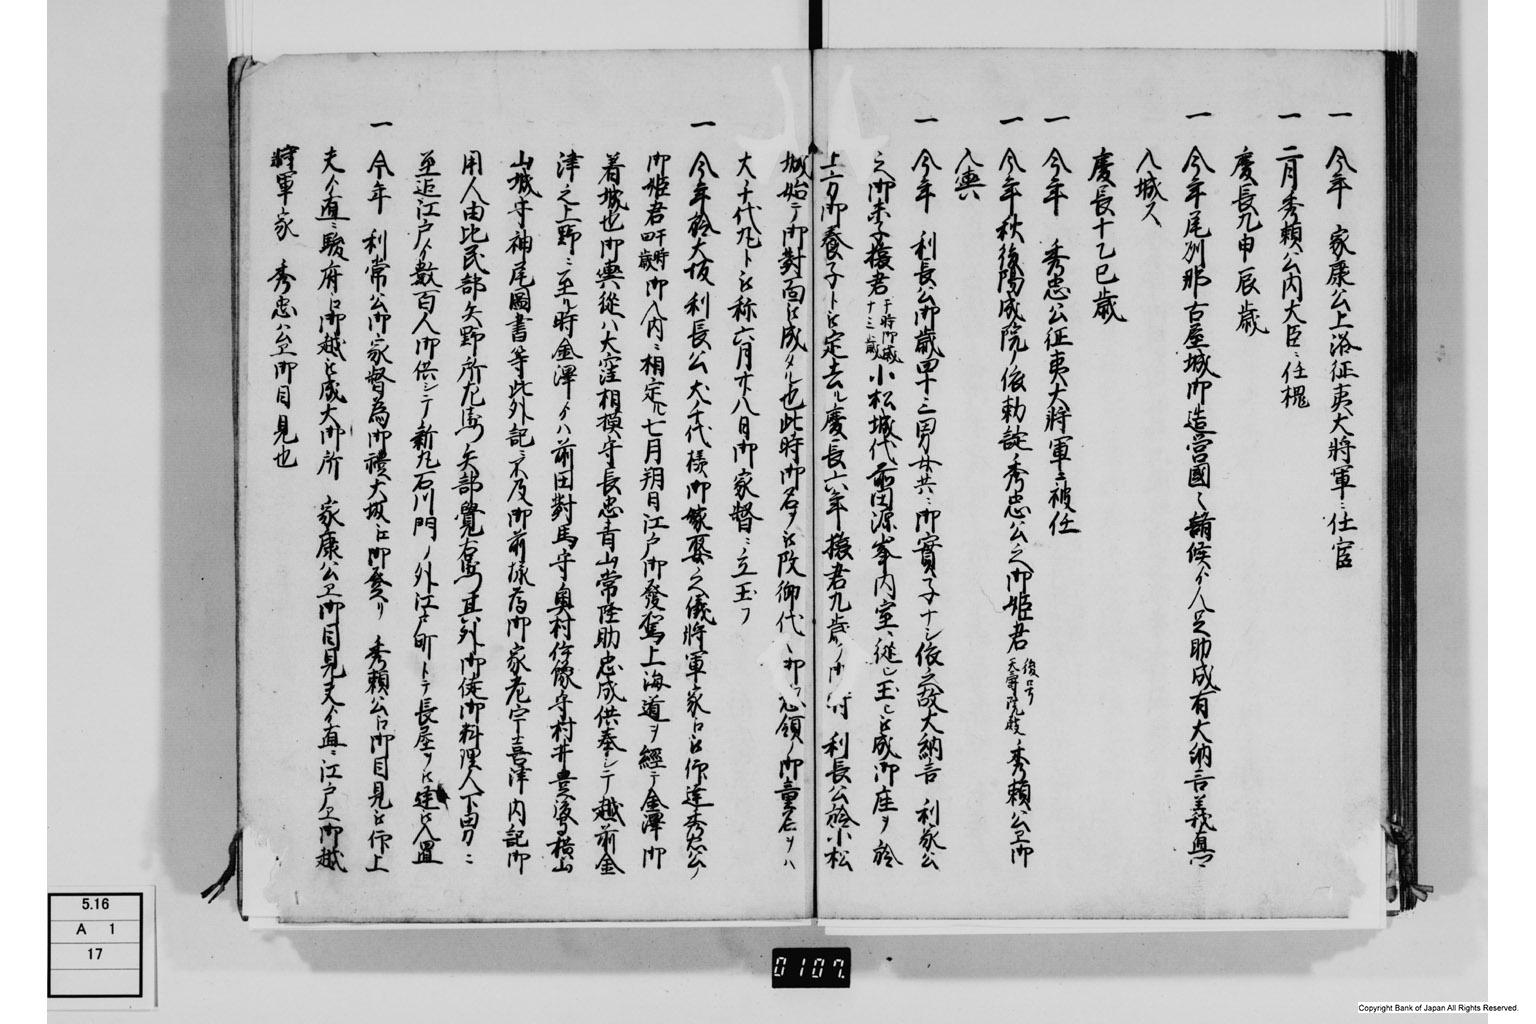 一 今年 家康公上洛征夷大将軍ニ任官
一 二月秀頼公内大臣ニ任槐
慶長九申辰歳
一 今年尾州那古屋城御造営國々諸候ゟ人足助成有大納言義直公
入城又
慶長十乙巳歳
一 今年 秀忠公征夷大将軍ニ被任
一 今年秋後陽成院ノ依勅諚ノ秀忠公之御姫君 後ニ号天寿院殿 秀頼公江御
入輿
一 今年 利長公御歳四十三男女共ニ御實子ナシ依之故大納言 利家公
之御末子猿君 于時御歳十三歳 小松城代前田源峯内室ニ従シ玉ヒ被成御座ヲ於
上方御養子ト被定去ル慶長六年猿君九歳ノ御時 利長公於小松
城始テ御對面被成タル也此時御名ヲ被改御代々御惣領ノ御童名ヲハ
犬千代丸ト被称六月廿八日御家督ニ立玉フ
一 今年於大坂利長公犬千代様御嫁娶之儀将軍家江被仰達秀忠公ノ
御姫君 于時四歳 御入内ニ相定ル七月朔日江戸御發駕上海道ヲ經テ金澤御
着城也御輿従ハ大窪相模守長忠青山常陸助忠成供奉シテ越前金
津之上野ニ至ル時金澤ゟハ前田對馬守奥村伊豫守村井豊後守横山
山城守神尾圖書等此外記ニ不及御前様為御家老宇喜津内記御
用人由比民部矢野所左衛門矢部覺右衛門其外御徒御料理人下男ニ
至迄江戸ゟ数百人御供シテ新丸石川門ノ外江戸町トテ長屋ヲ被建被入置
一 今年 利常公御家督為御禮大坂江御登リ 秀頼公江御目見被仰上
夫ゟ直ニ駿府江御越被成大御所 家康公江御目見夫ゟ直ニ江戸江御越
将軍家 秀忠公江御目見也
5.16
A 1
17
0107.
Copyright Bank of Japan All Rights Reserved.